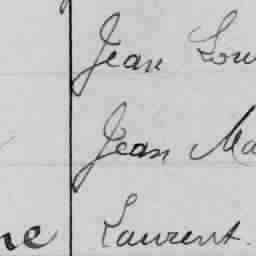 Jean Lou
Jean Ma
ne Laurent.